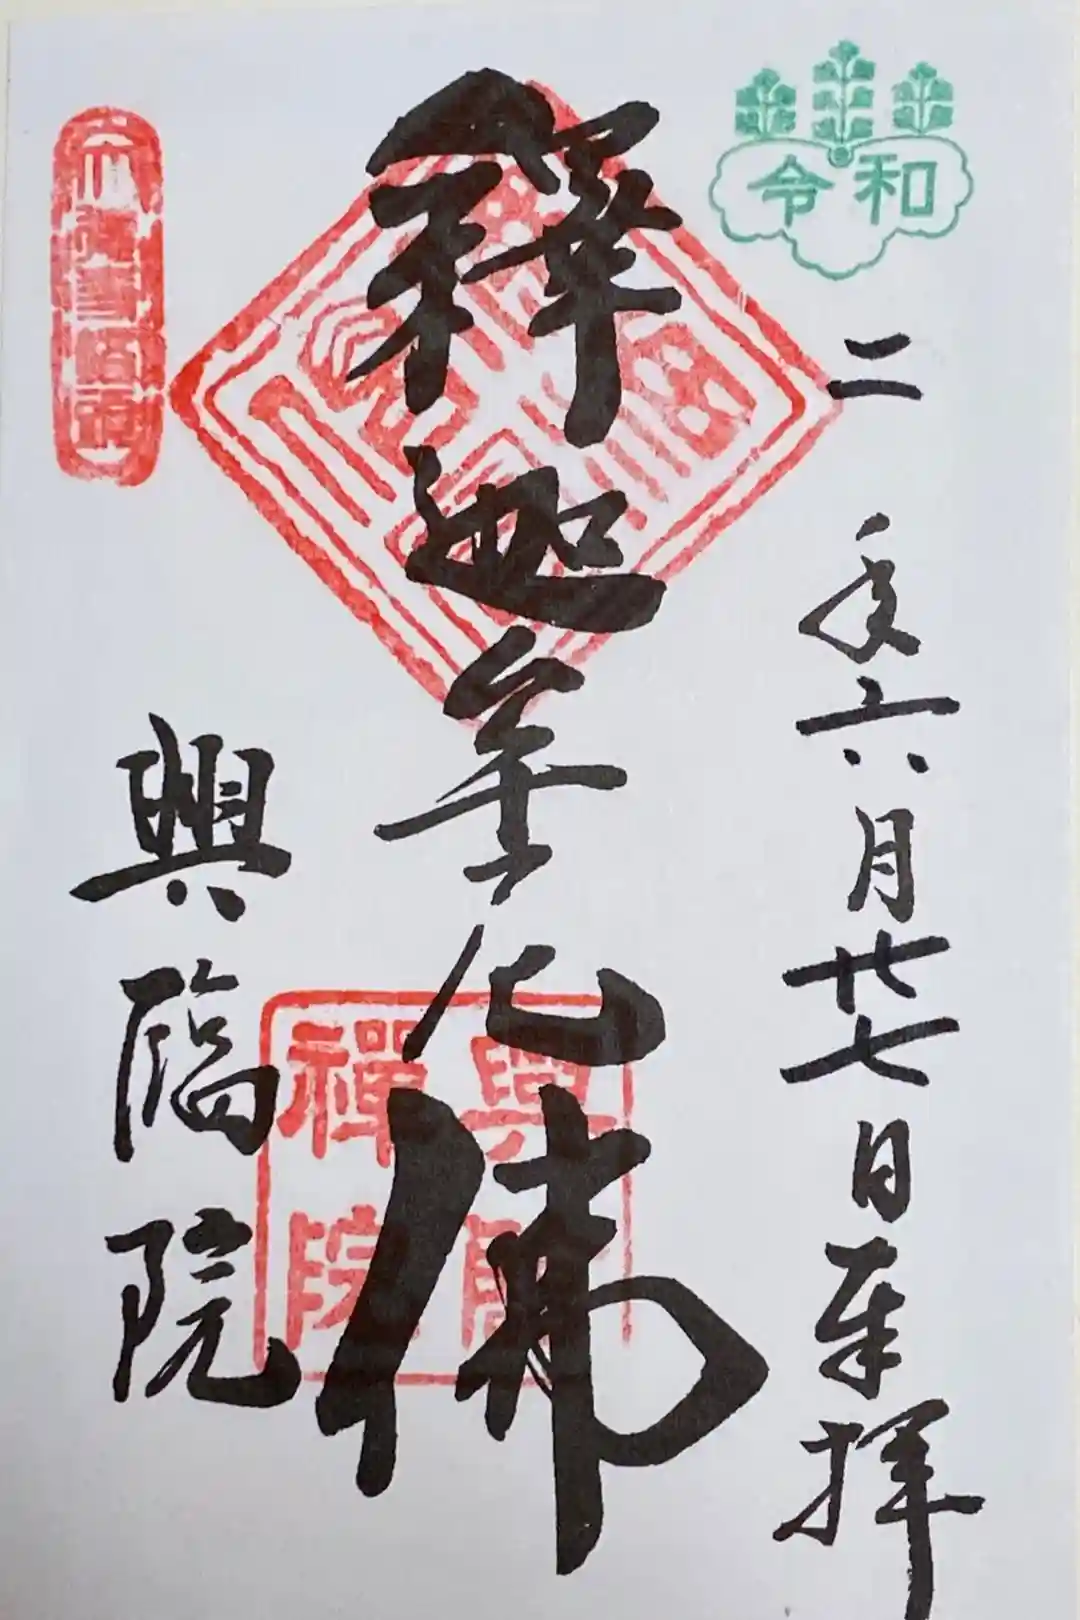 令和
二年六月廿七日奉拝
釋迦牟尼佛
興臨院
興臨禪院